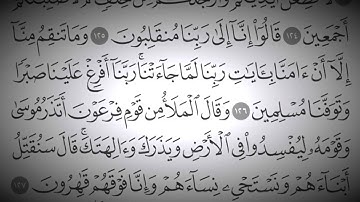 أَجْمَعِينَ ١٢٤ قَالُوٓا۟ إِنَّآ إِلَىٰ رَبِّنَا مُنقَلِبُونَ ١٢٥ وَمَا تَنقِمُ مِنَّآ
إِلَّآ أَنْ ءَامَنَّا بِـَٔايَـٰتِ رَبِّنَا لَمَّا جَآءَتْنَا ۚ رَبَّنَآ أَفْرِغْ عَلَيْنَا صَبْرًا
وَتَوَفَّنَا مُسْلِمِينَ ١٢٦ وَقَالَ ٱلْمَلَأُ مِن قَوْمِ فِرْعَوْنَ أَتَذَرُ مُوسَىٰ
وَقَوْمَهُۥ لِيُفْسِدُوا۟ فِى ٱلْأَرْضِ وَيَذَرَكَ وَءَالِهَتَكَ ۚ قَالَ سَنُقَتِّلُ
أَبْنَآءَهُمْ وَنَسْتَحْىِۦ نِسَآءَهُمْ وَإِنَّا فَوْقَهُمْ قَـٰهِرُونَ ١٢٧